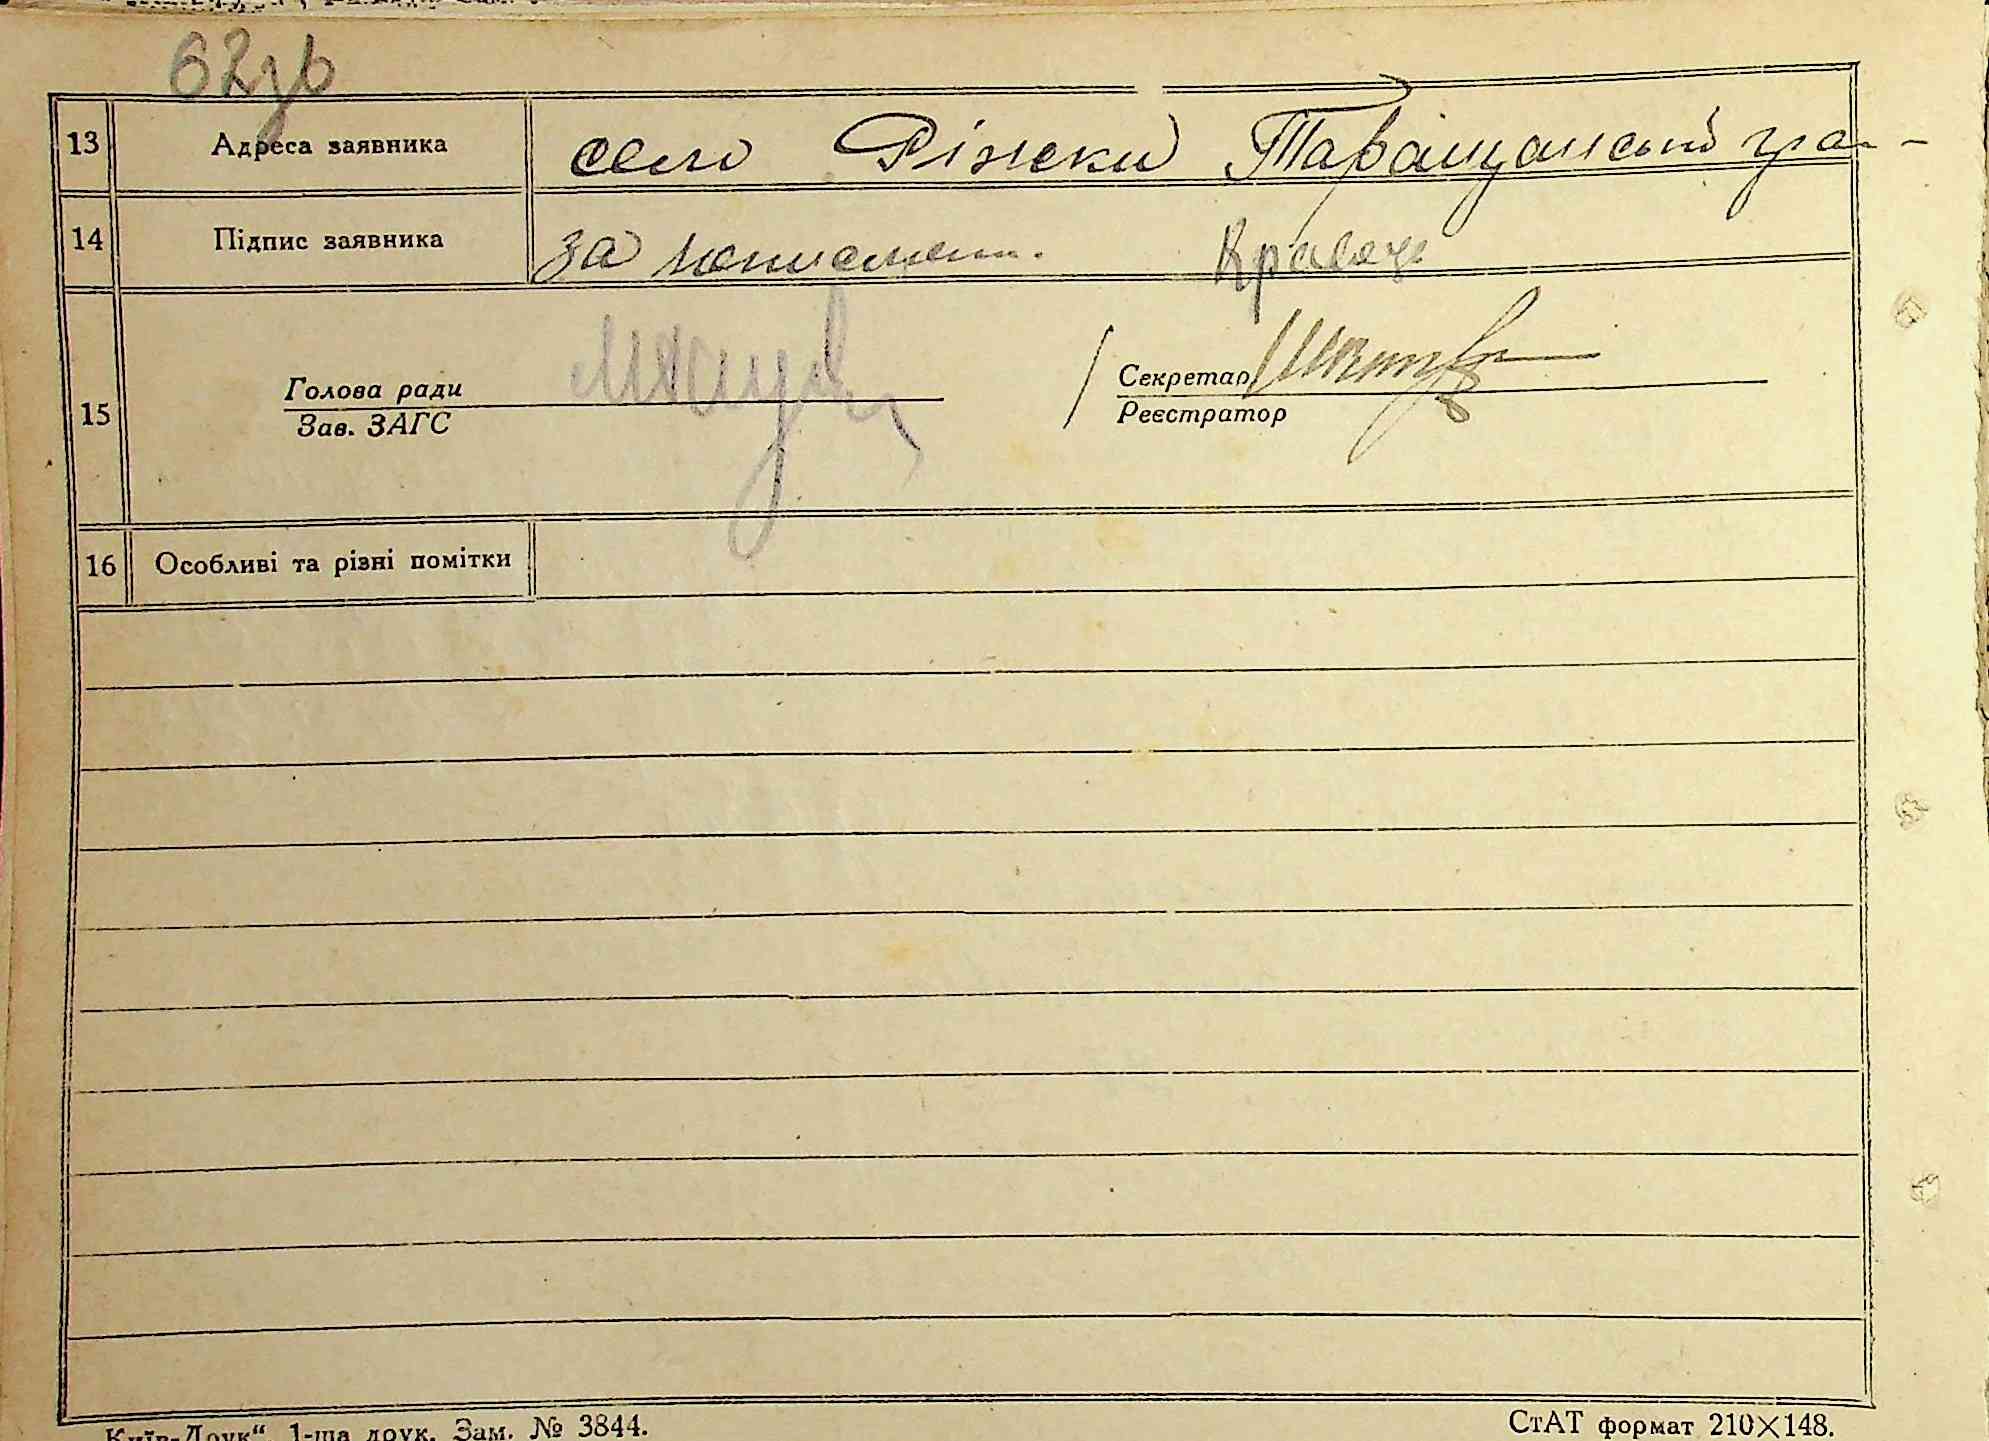 62зв
13 Адреса заявника село Ріжки Таращанський ра-
14 Підпис заявника за Кравець
Голова ради Секретар
15 Зав. ЗАГС Реєстратор
16 Особливі та різні помітки
Київ-Друк“, 1-ша друк. Зам. № 3844. СтАТ формат 210×148.